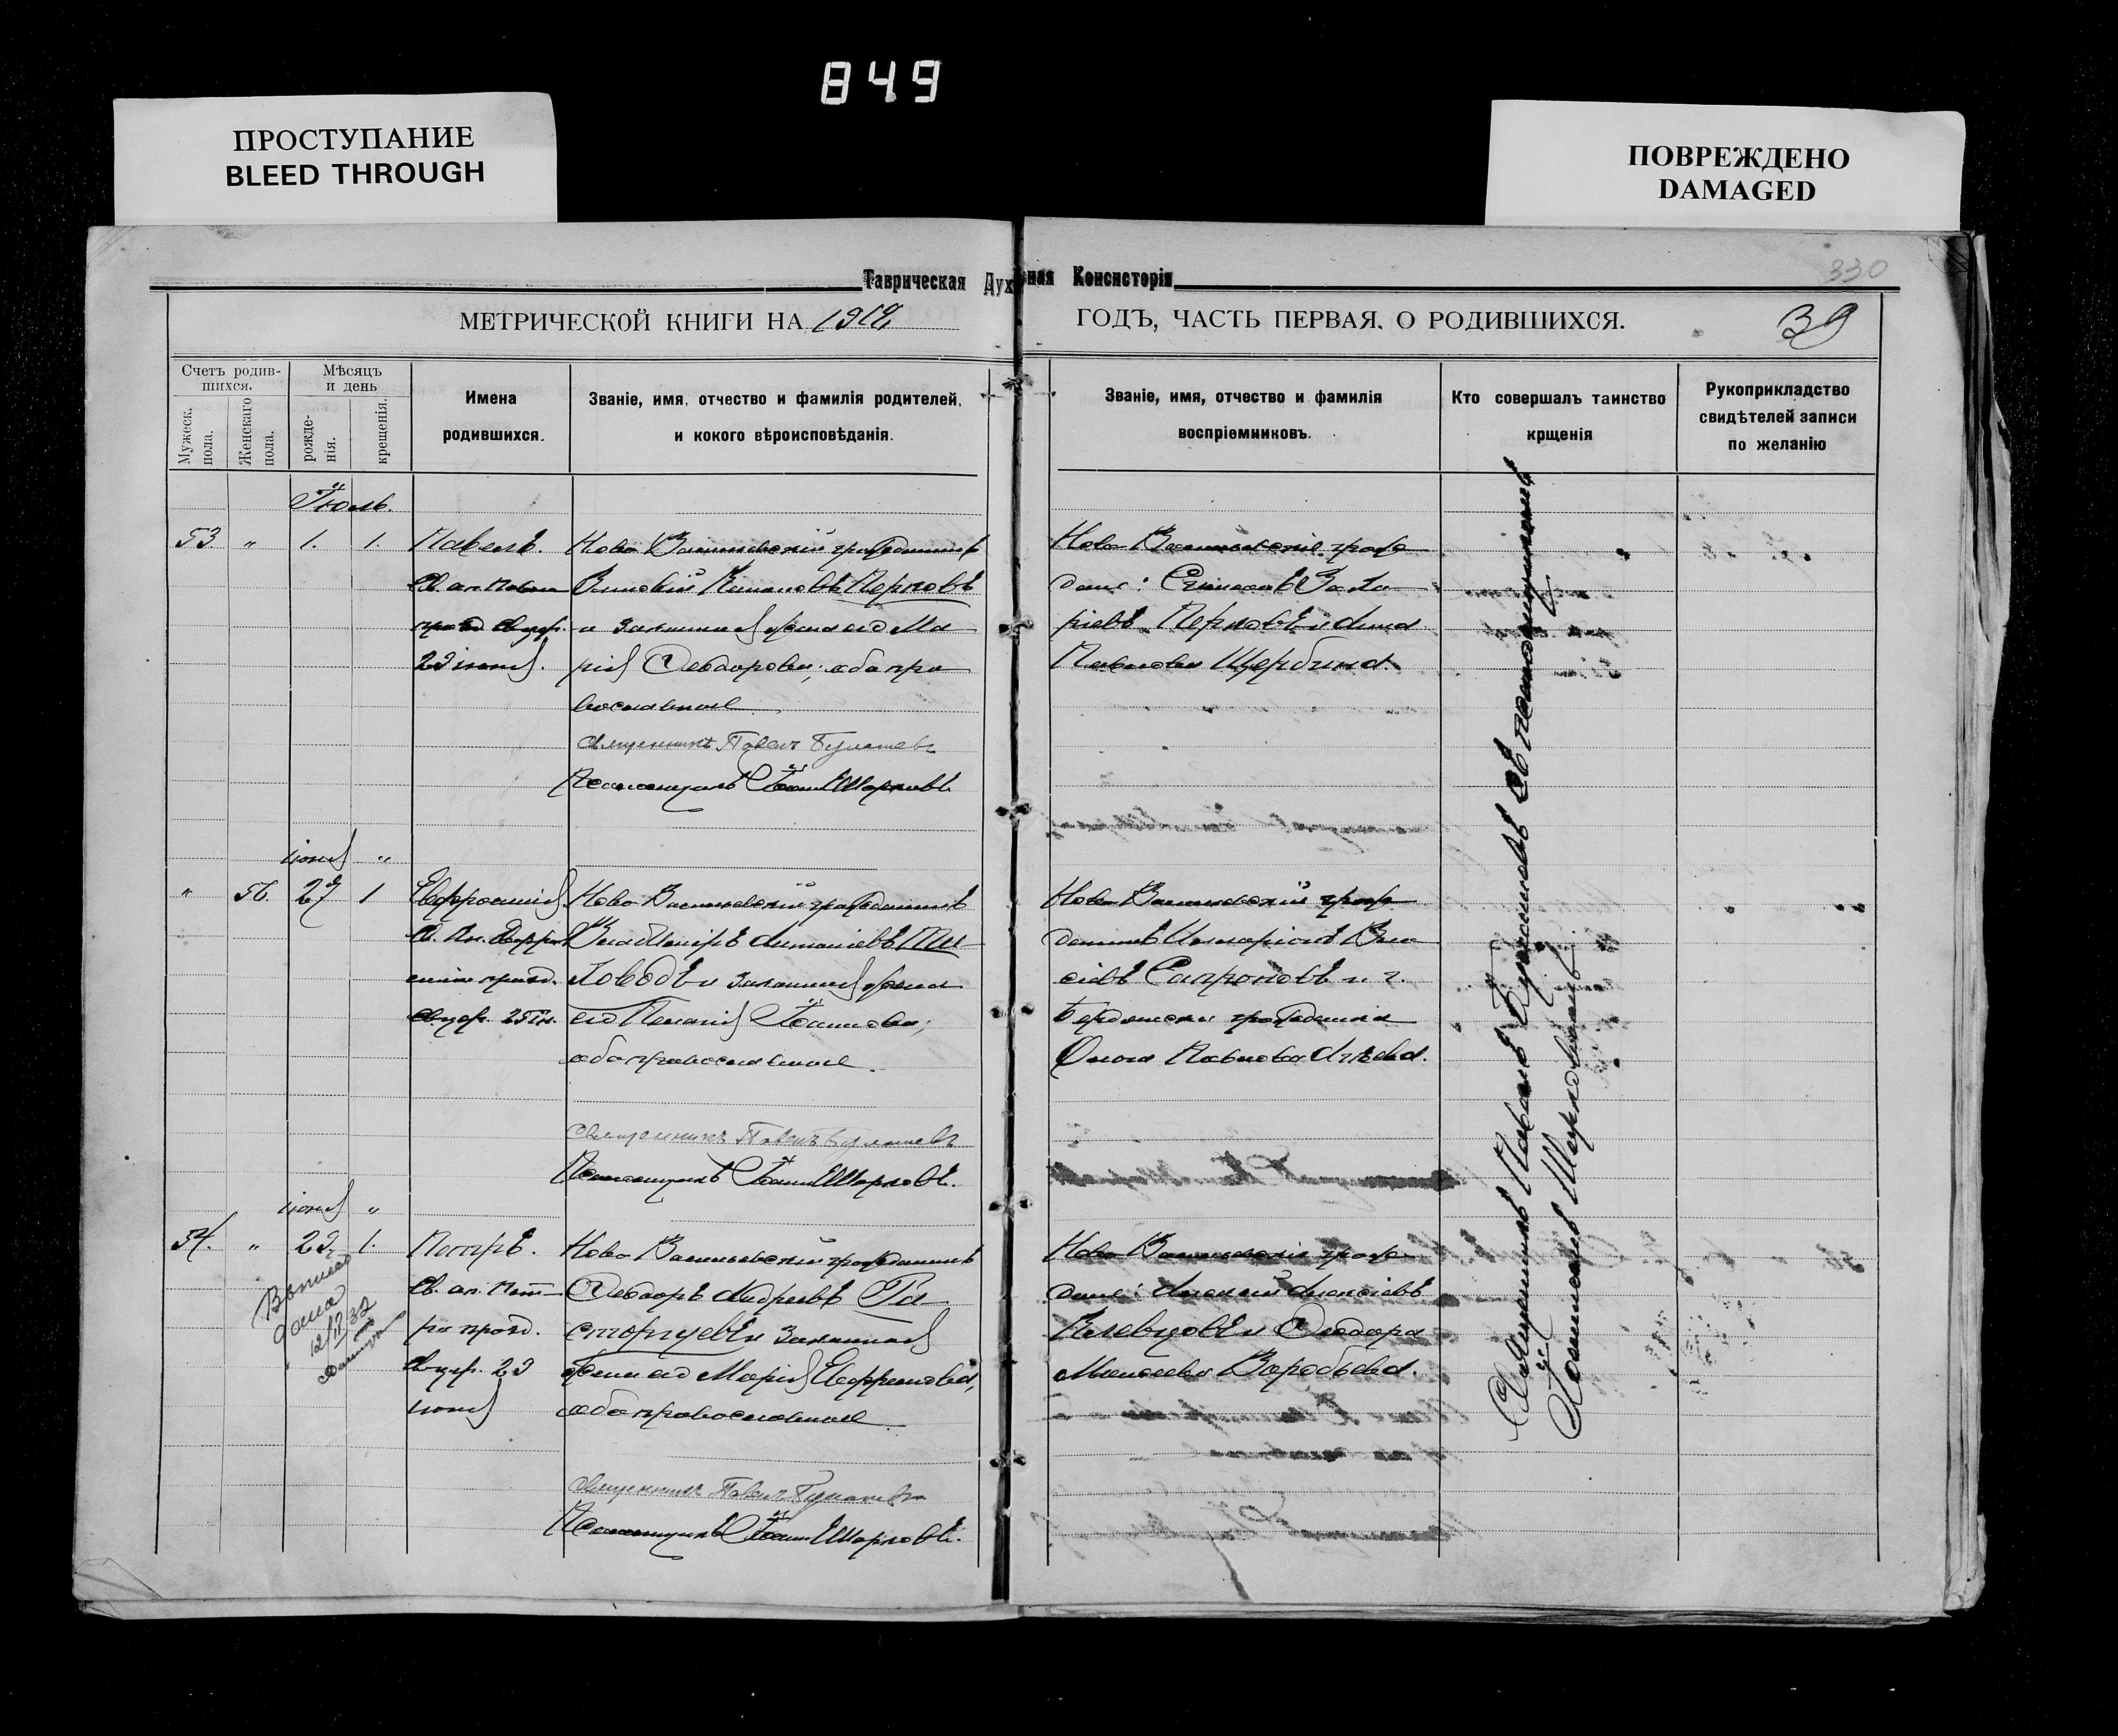 849
ПРОСТУПАНИЕ
BLEED THROUGH
ПОВРЕЖДЕНО
DAMAGED
Таврическая Духовная Консисторія
330
МЕТРИЧЕСКОЙ КНИГИ НА 1918 ГОДЪ, ЧАСТЬ ПЕРВАЯ, О РОДИВШИХСЯ.
39
Счетъ родив-
шихся.
Мужеск. пола.
Женскаго пола.
Мѣсяцъ
и день
рожде-
нія.
крещенія.
Имена
родившихся.
Званіе, имя, отчество и фамилія родителей,
и кокого вѣроисповѣданія.
Званіе, имя, отчество и фамилія
воспріемниковъ.
Кто совершалъ таинство
крщенія
Рукоприкладство
свидѣтелей записи
по желанію
Іюль.
53. " 1. 1.
Павелъ.
Св. ап. Павла
празд. св. цер.
29 іюня.
Ново Васильевскій гражданинъ
Перновъ
и законная жена его Ма
рія Ѳеодорова; оба пра
вославные
Священникъ Павелъ Булашевъ
Псаломщикъ Іоаннъ Шарковъ.
Ново Васильевскіе граж
дане:
Перновъ и Анна
Павлова Щербина.
іюня "
" 56. 27 1
Евфросинія
празд.
св. цер. 25 ін.
Ново Васильевскій гражданинъ
и законная жена
его Пелагія Іоаннова;
оба православные.
Священникъ Павелъ Булашевъ
Псаломщикъ Іоаннъ Шарковъ.
Ново Васильевскій граж
данинъ Иларіонъ Вла
сіевъ Сапроновъ и г.
Бердянска гражданка
Ольга Павлова
іюня "
54. " 29. 1.
Петръ.
Св. ап. Пет
ра празд.
св. цер. 29
іюня
Ново Васильевскій гражданинъ
Ѳеодоръ Андреевъ Ра
сторгуевъ и законная
жена его Марія Евфремова,
оба православные
Священникъ Павелъ Булашевъ
Псаломщикъ Іоаннъ Шарковъ.
Ново Васильевскіе граж
дане: Алексій Алексіевъ
и Ѳеодора
Моисеева Воробьева.
Священникъ Павелъ Булашевъ съ псаломщикомъ
Іоанномъ Шарковымъ